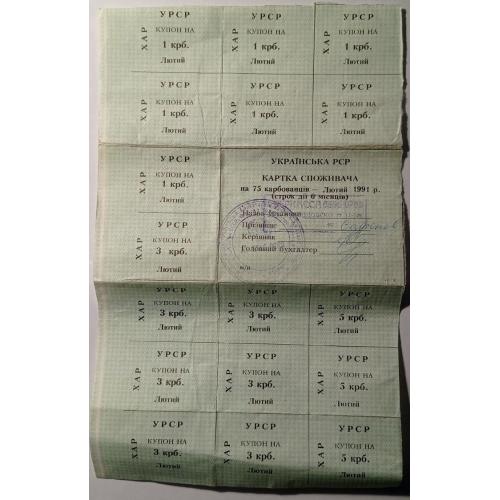 УРСР
ХАР
КУПОН НА
1 крб.
Лютий
УРСР
ХАР
КУПОН НА
1 крб.
Лютий
УРСР
ХАР
КУПОН НА
1 крб.
Лютий
УРСР
ХАР
КУПОН НА
1 крб.
Лютий
УРСР
ХАР
КУПОН НА
1 крб.
Лютий
УРСР
ХАР
КУПОН НА
1 крб.
Лютий
УРСР
ХАР
КУПОН НА
1 крб.
Лютий
УРСР
ХАР
КУПОН НА
3 крб.
Лютий
УКРАЇНСЬКА РСР
КАРТКА СПОЖИВАЧА
на 75 карбованців — Лютий 1991 р.
(строк дії 6 місяців)
Прізвище
Керівник
Головний бухгалтер
м/п
УРСР
ХАР
КУПОН НА
3 крб.
Лютий
УРСР
ХАР
КУПОН НА
3 крб.
Лютий
УРСР
ХАР
КУПОН НА
5 крб.
Лютий
УРСР
ХАР
КУПОН НА
3 крб.
Лютий
УРСР
ХАР
КУПОН НА
3 крб.
Лютий
УРСР
ХАР
КУПОН НА
5 крб.
Лютий
УРСР
ХАР
КУПОН НА
3 крб.
Лютий
УРСР
ХАР
КУПОН НА
3 крб.
Лютий
УРСР
ХАР
КУПОН НА
5 крб.
Лютий